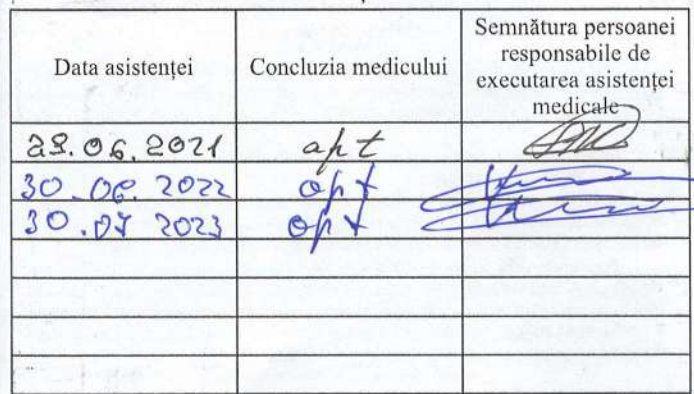 Data asistenței
Concluzia medicului
Semnătura persoanei
responsabile de
executarea asistenței
medicale
29.06.2021 apt
30.06.2022 apt
30.07 2023 apt